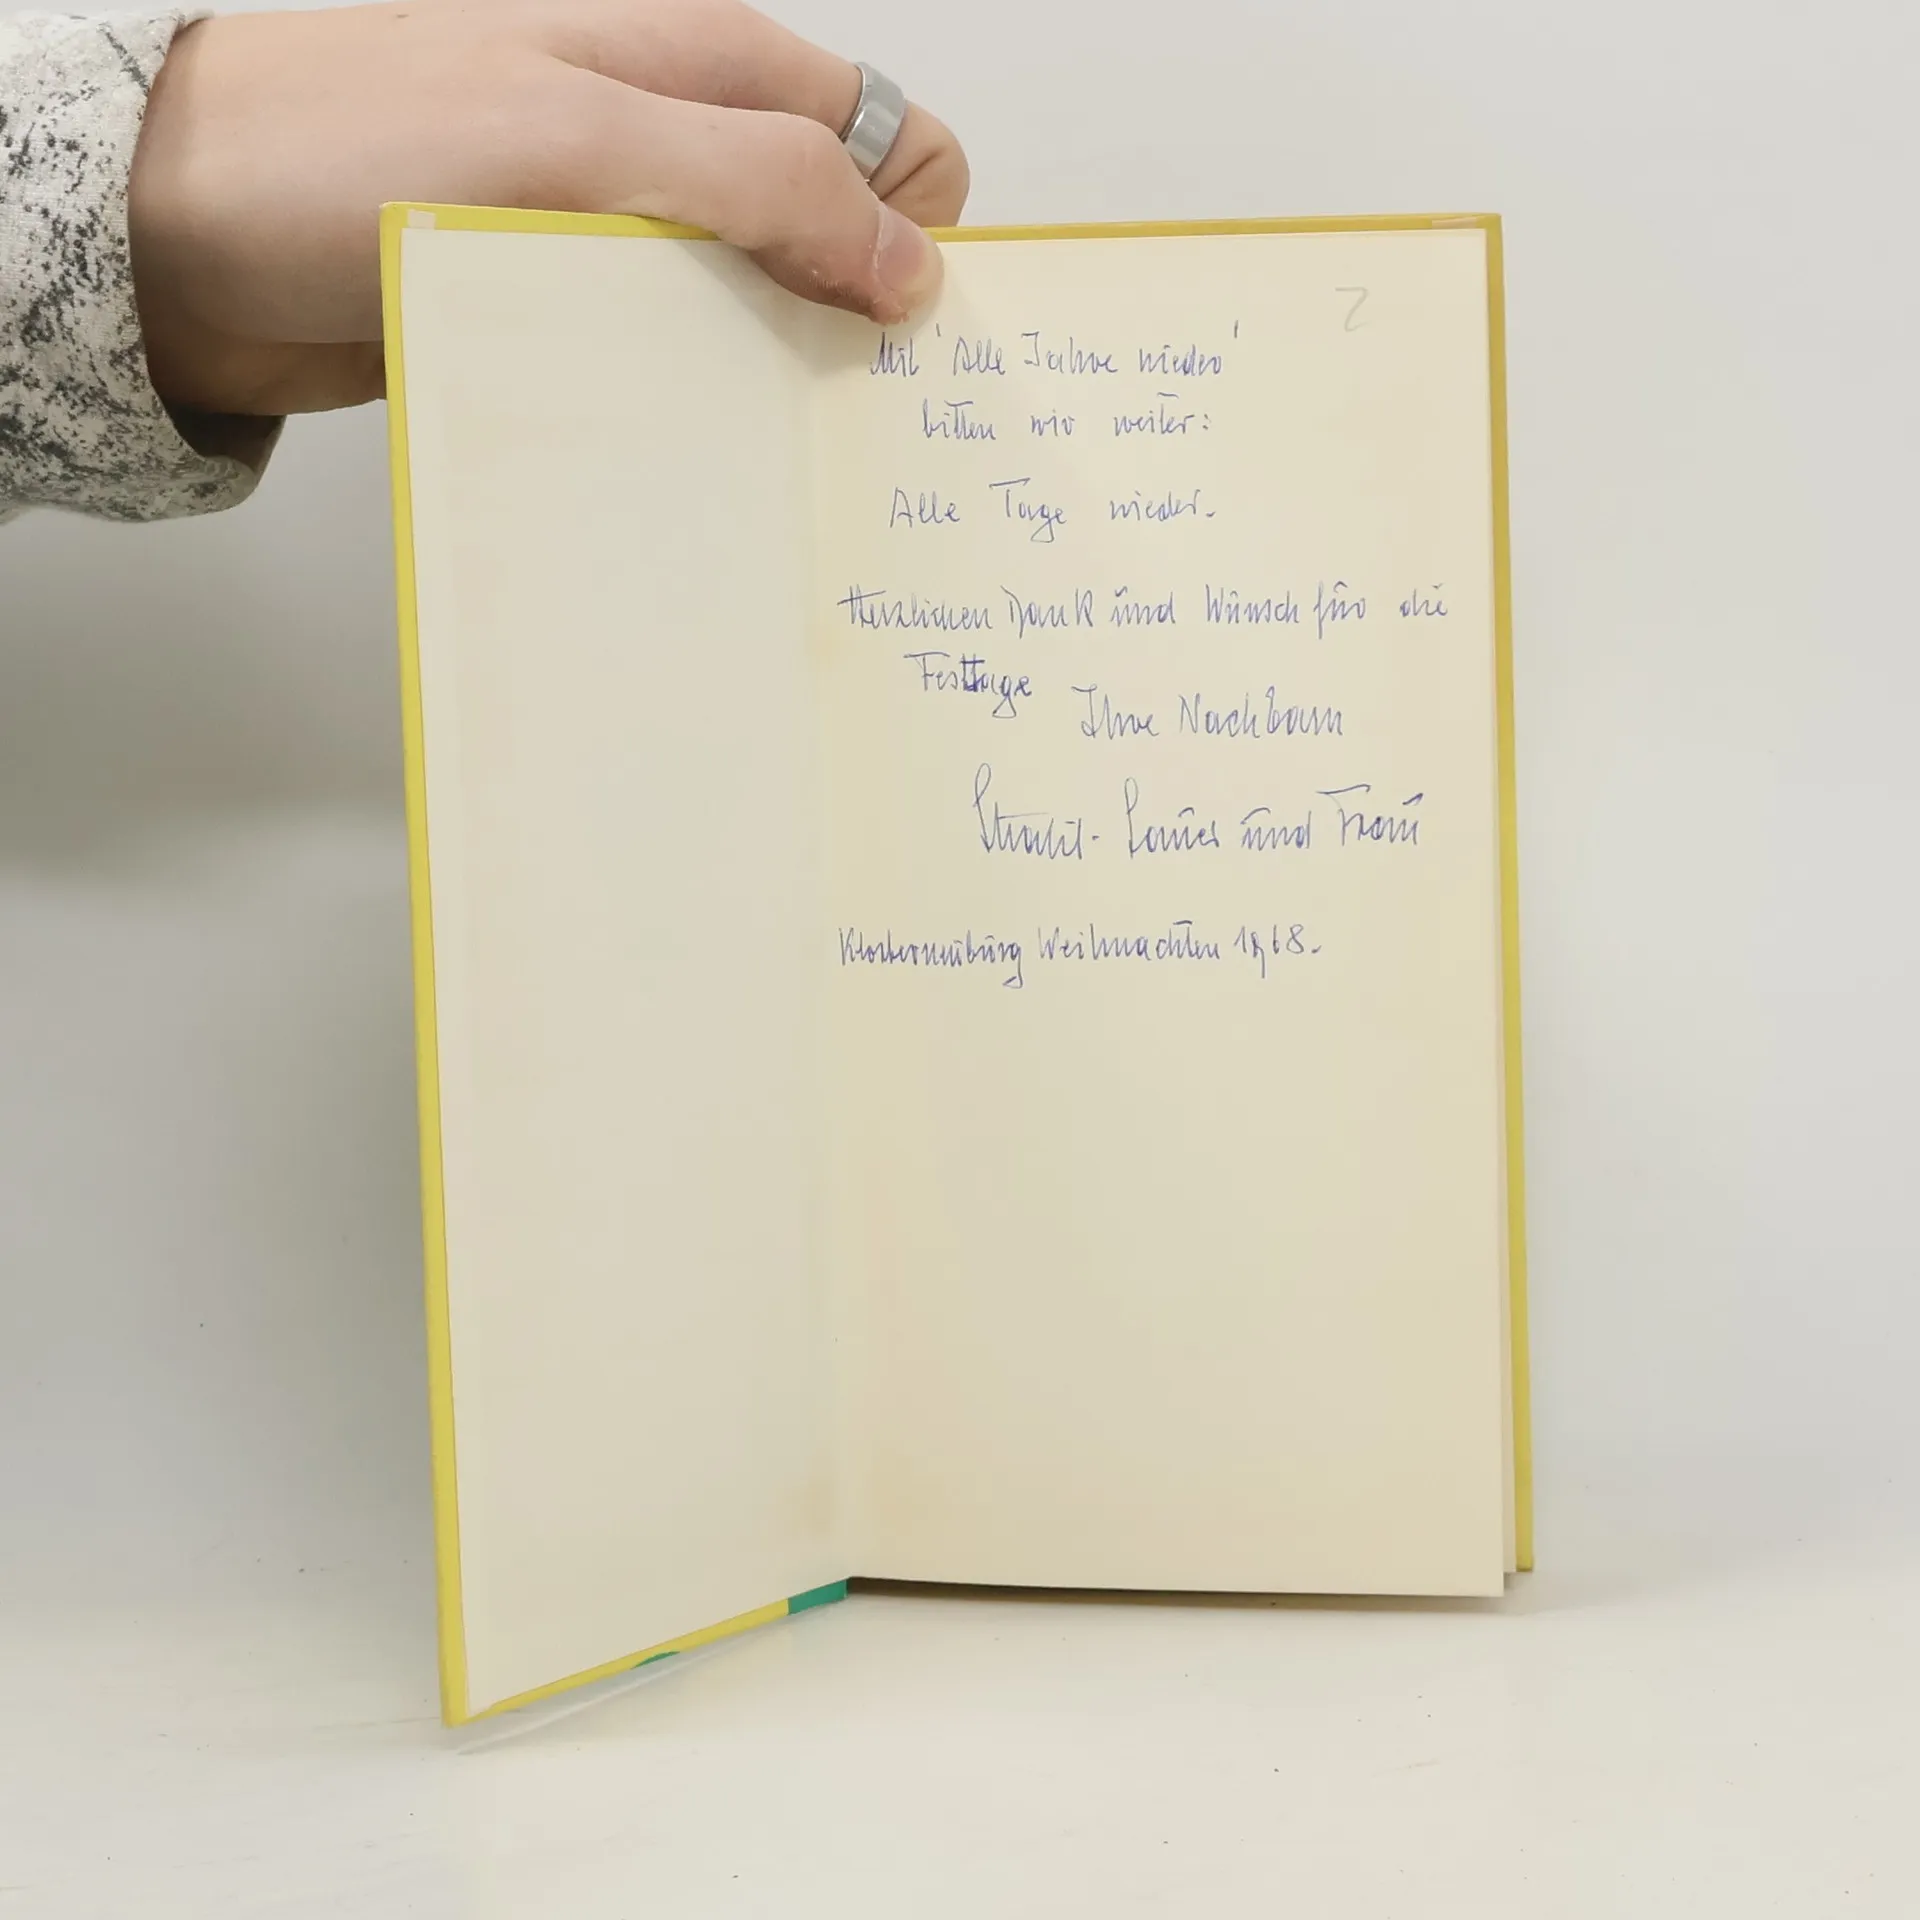 2
Mit 'Alle Jahre wieder'
bitten wir weiter:
Alle Tage wieder.
Herzlichen Dank und Wunsch für die
Festtage
Ihre Nachbarn
und Frau
Klosterneuburg Weihnachten 1968.